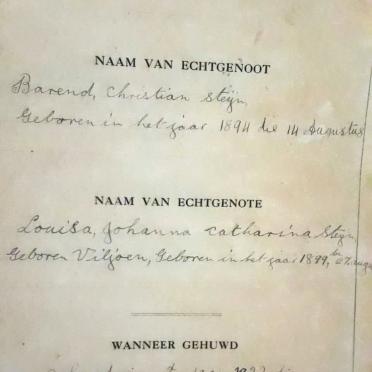 NAAM VAN ECHTGENOOT
Barend, Christian Steyn
Geboren in het jaar 1894 die 14 Augustus
NAAM VAN ECHTGENOTE
Louisa, Johanna Catharina Steyn
Geboren Viljoen, Geboren in het jaar 1899,
WANNEER GEHUWD